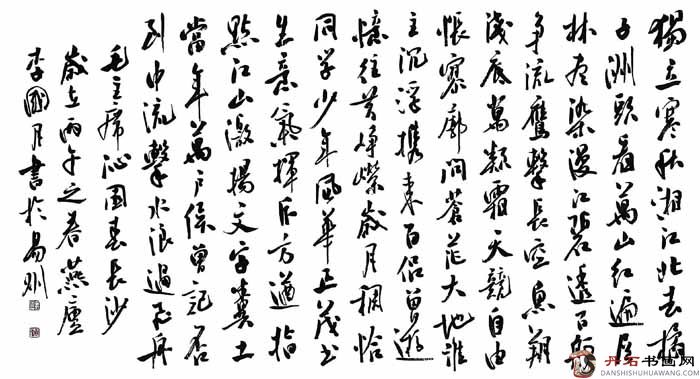 獨立寒秋湘江北去橘
子洲頭看萬山紅遍層
林盡染漫江碧透百舸
争流鷹擊長空魚翔
淺底萬類霜天競自由
悵寥廓問蒼茫大地誰
主沉浮携來百侣曾遊
憶往昔崢嶸歲月稠恰
同學少年風華正茂書
生意氣揮斥方遒指
點江山激揚文字糞土
當年萬户侯曾記否
到中流擊水浪遏飛舟
毛主席沁園春長沙
歲在丙午之春燕廬
李國月書於易州
丹石书画网
DANSHISHUHUAWANG.COM